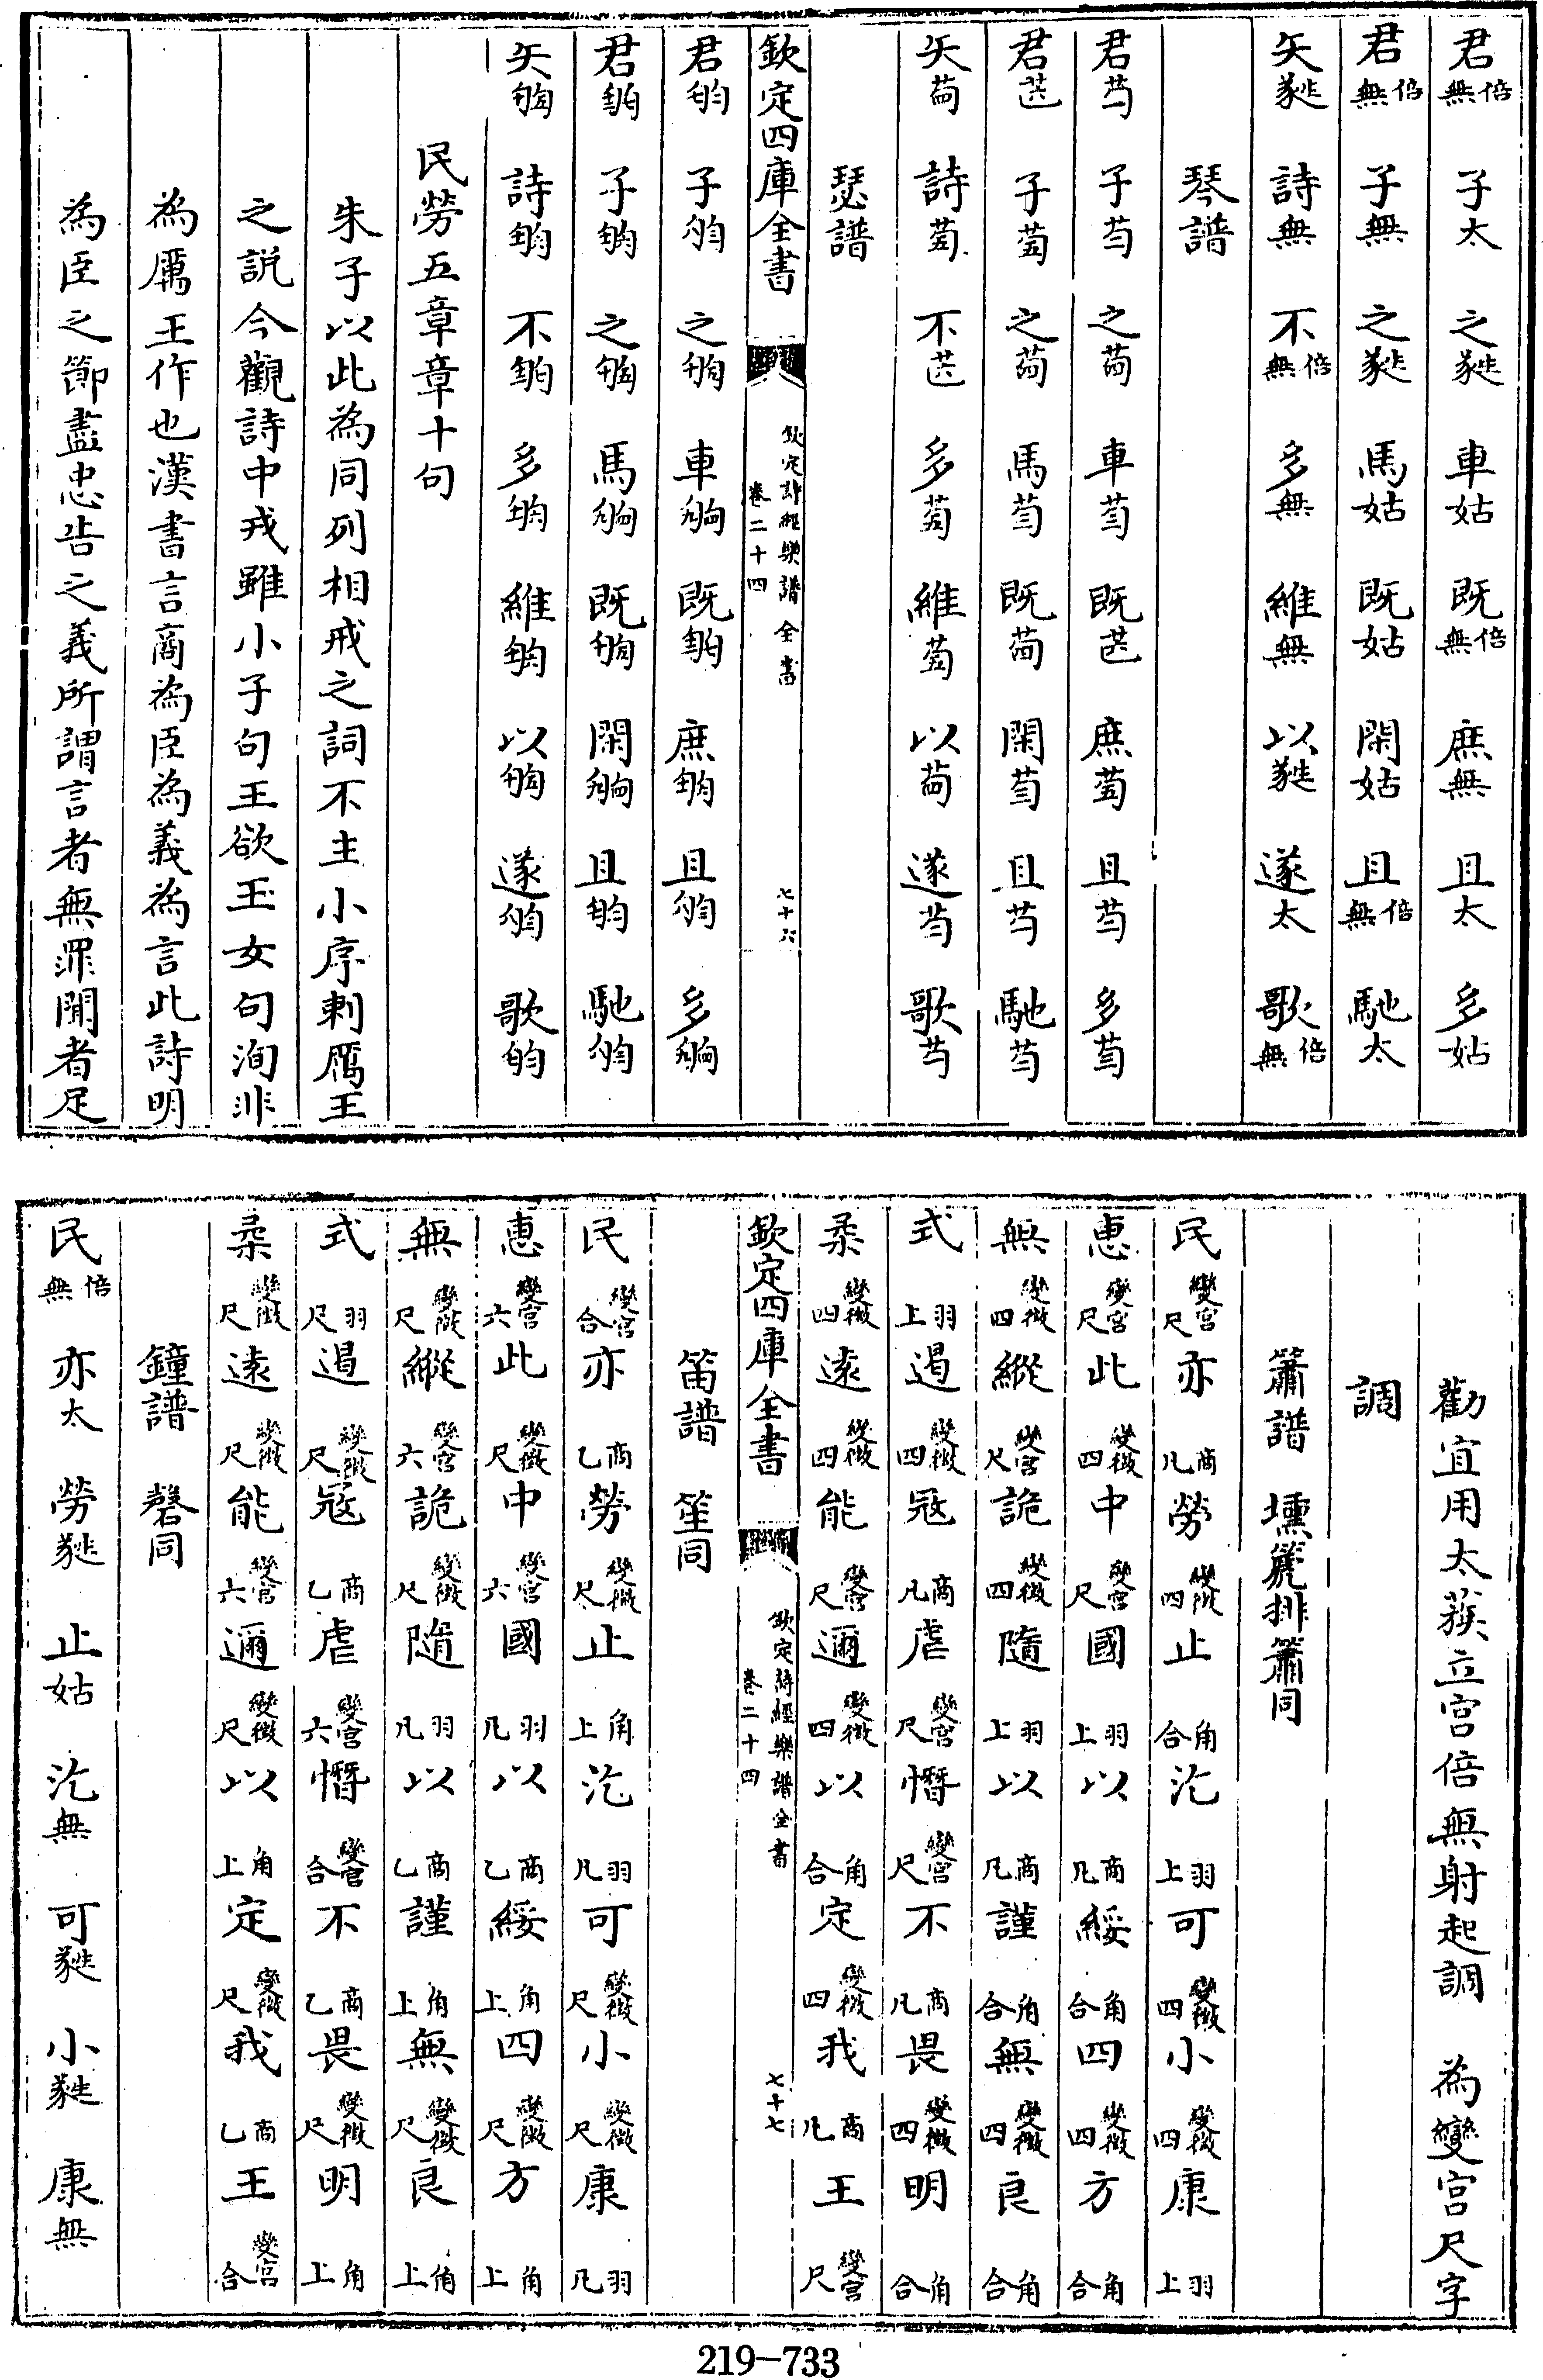 君倍無 子太 之蕤 車姑 既倍無 庶無 且太 多姑
君倍無 子無 之蕤 馬姑 既姑 閑姑 且倍無 馳太
矢蕤 詩無 不倍無 多無 維無 以蕤 遂太 歌倍無
琴譜
君 子 之 車 既 庶 且 多
君 子 之 馬 既 閑 且 馳
矢 詩 不 多 維 以 遂 歌
瑟譜
欽定四庫全書 欽定詩經樂譜全書 卷二十四 七十六
君 子 之 車 既 庶 且 多
君 子 之 馬 既 閑 且 馳
矢 詩 不 多 維 以 遂 歌
民勞五章章十句
朱子以此為同列相戒之詞不主小序刺厲王
之説今觀詩中戎雖小子句王欲玉女句洵非
為厲王作也漢書言商為臣為義為言此詩明
為臣之節盡忠告之義所謂言者無罪聞者足
勸宜用太蔟立宮倍無射起調 為變宮尺字
調
簫譜 壎篪排簫同
民變宮尺 亦商凡 勞變徵四 止角合 汔羽上 可變徵四 小變徵四 康羽上
惠變宮尺 此變徵四 中變宮尺 國羽上 以商凡 綏角合 四變徵四 方角合
無變徵四 縱變宮尺 詭變徵四 隨羽上 以商凡 謹角合 無變徵四 良角合
式羽上 遏變徵四 寇商凡 虐變宮尺 憯變宮尺 不商凡 畏變徵四 明角合
柔變徵四 遠變徵四 能變宮尺 邇變徵四 以角合 定變徵四 我商凡 王變宮尺
欽定四庫全書 欽定詩經樂譜全書 卷二十四 七十七
笛譜 笙同
民變宮合 亦商乙 勞變徵尺 止角上 汔羽凡 可變徵尺 小變徵尺 康羽凡
惠變宮六 此變徵尺 中變宮六 國羽凡 以商乙 綏角上 四變徵尺 方角上
無變徵尺 縱變宮六 詭變徵尺 隨羽凡 以商乙 謹角上 無變徵尺 良角上
式羽尺 遏變徵尺 寇商乙 虐變宮六 憯變宮合 不商乙 畏變徵尺 明角上
柔變徵尺 遠變徵尺 能變宮六 邇變徵尺 以角上 定變徵尺 我商乙 王變宮合
鐘譜 磬同
民倍無 亦太 勞蕤 止姑 汔無 可蕤 小蕤 康無
219-733